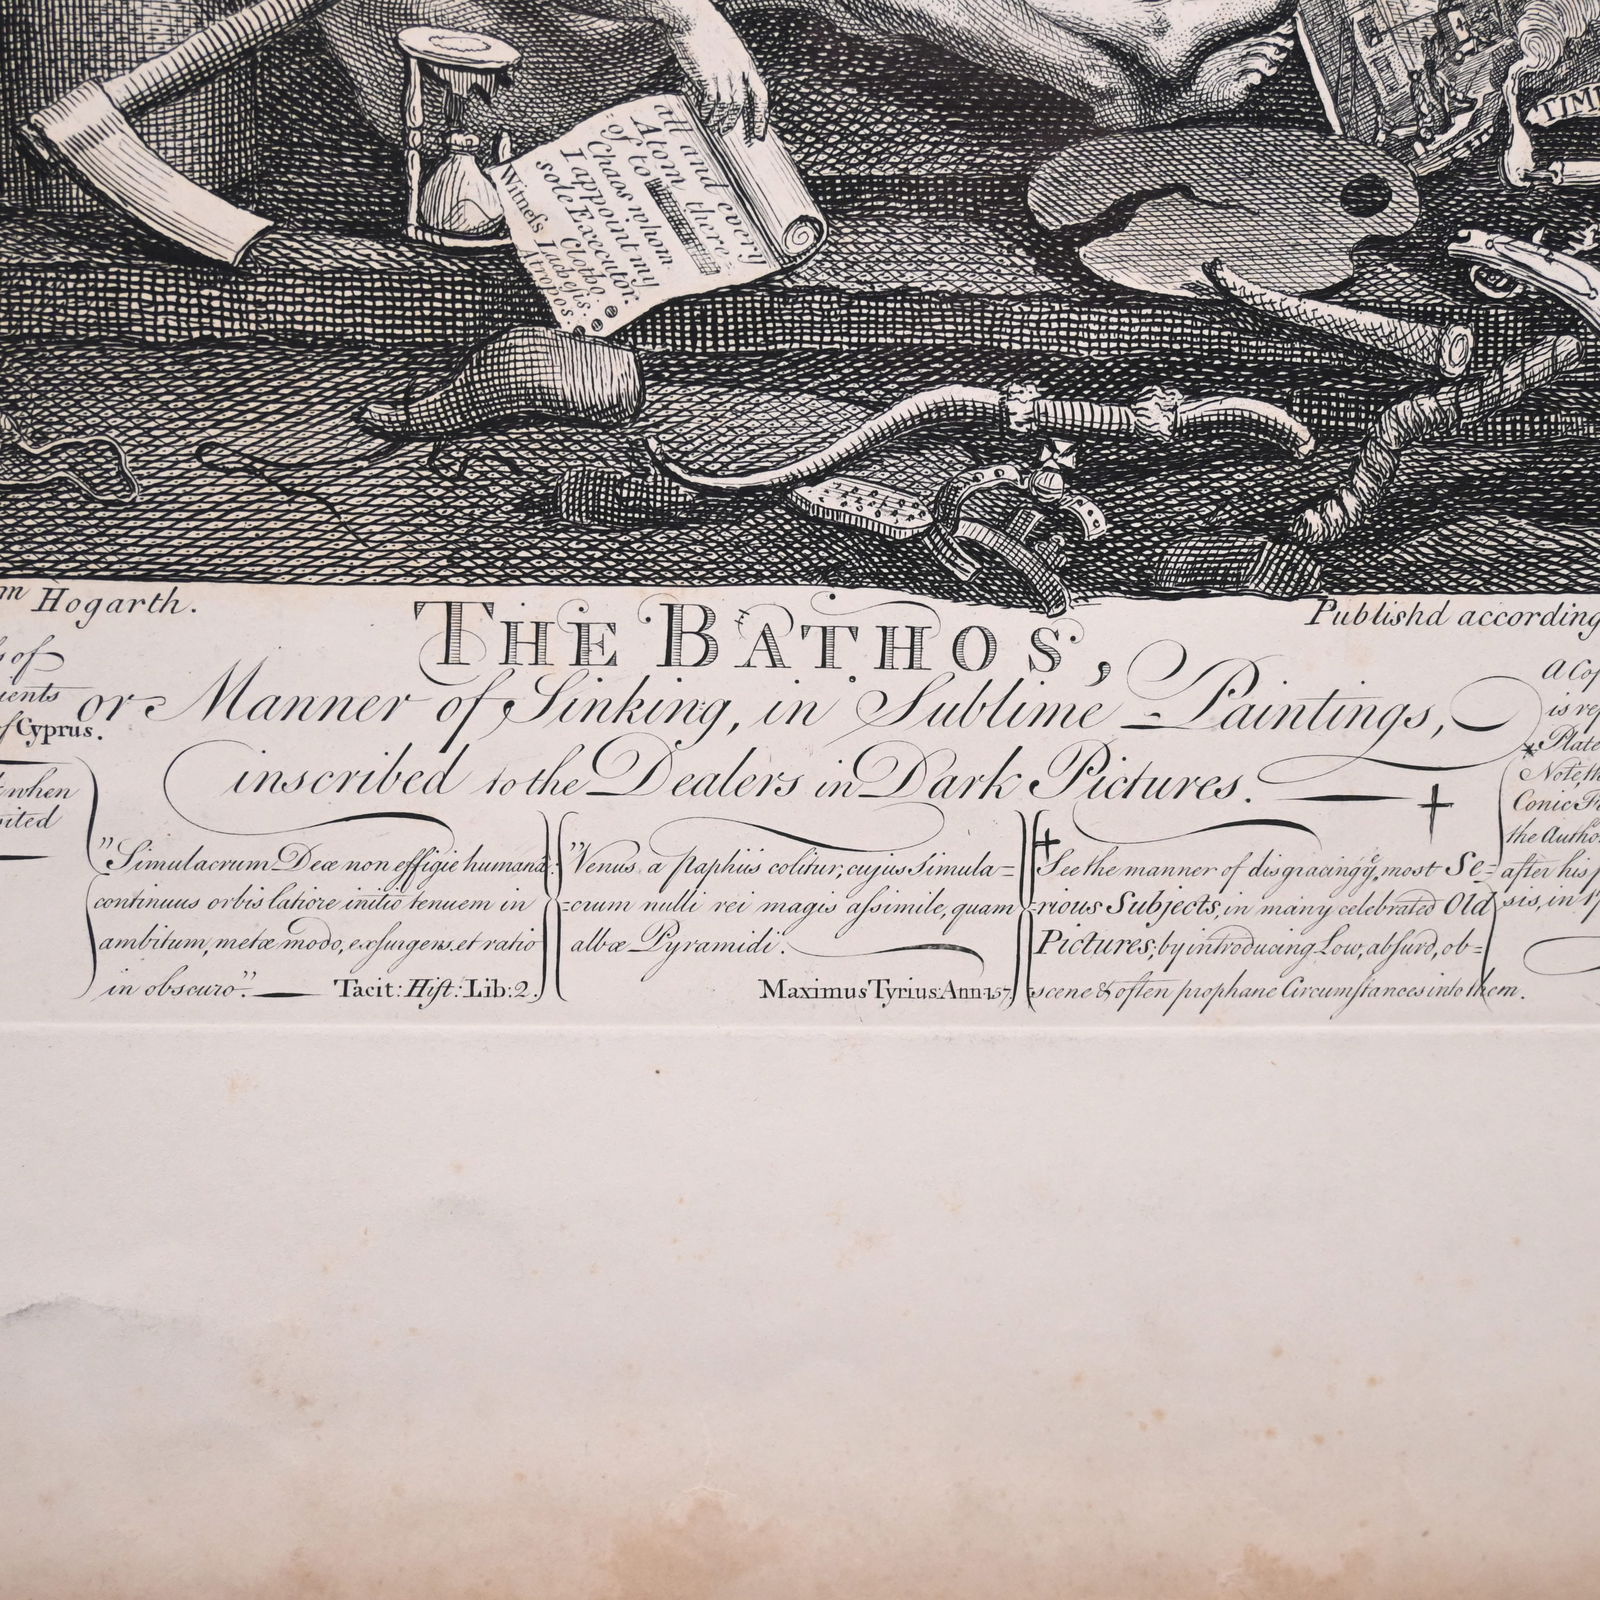 all and every
Atom there=
of to
Chaos whom
I appoint my
sole Executor.
Clotho.
Witneſs Lacheſis.
Atropos
TIME
m Hogarth.
Publishd according
THE BATHOS,
or Manner of Sinking, in Sublime Paintings,
inscribed to the Dealers in Dark Pictures.
of
ients
of Cyprus.
when
"Simulacrum Deæ non effigie humana:
continuus orbis latiore initio tenuem in
ambitum, metæ modo, exſurgens, et ratio
in obscuro". Tacit: Hiſt: Lib: 2.
"Venus a Paphiis colitur, cujus Simula=
=crum nulli rei magis aſsimile, quam
albæ Pyramidi.
Maximus Tyrius: Ann 157.
See the manner of disgracing yͤ most Se=
=rious Subjects, in many celebrated Old
Pictures; by introducing Low, abſurd, ob=
scene & often prophane Circumſtances into them.
A Cop
is rep
* Plate
Note, th
Conic F
the Autho
after his
sis, in